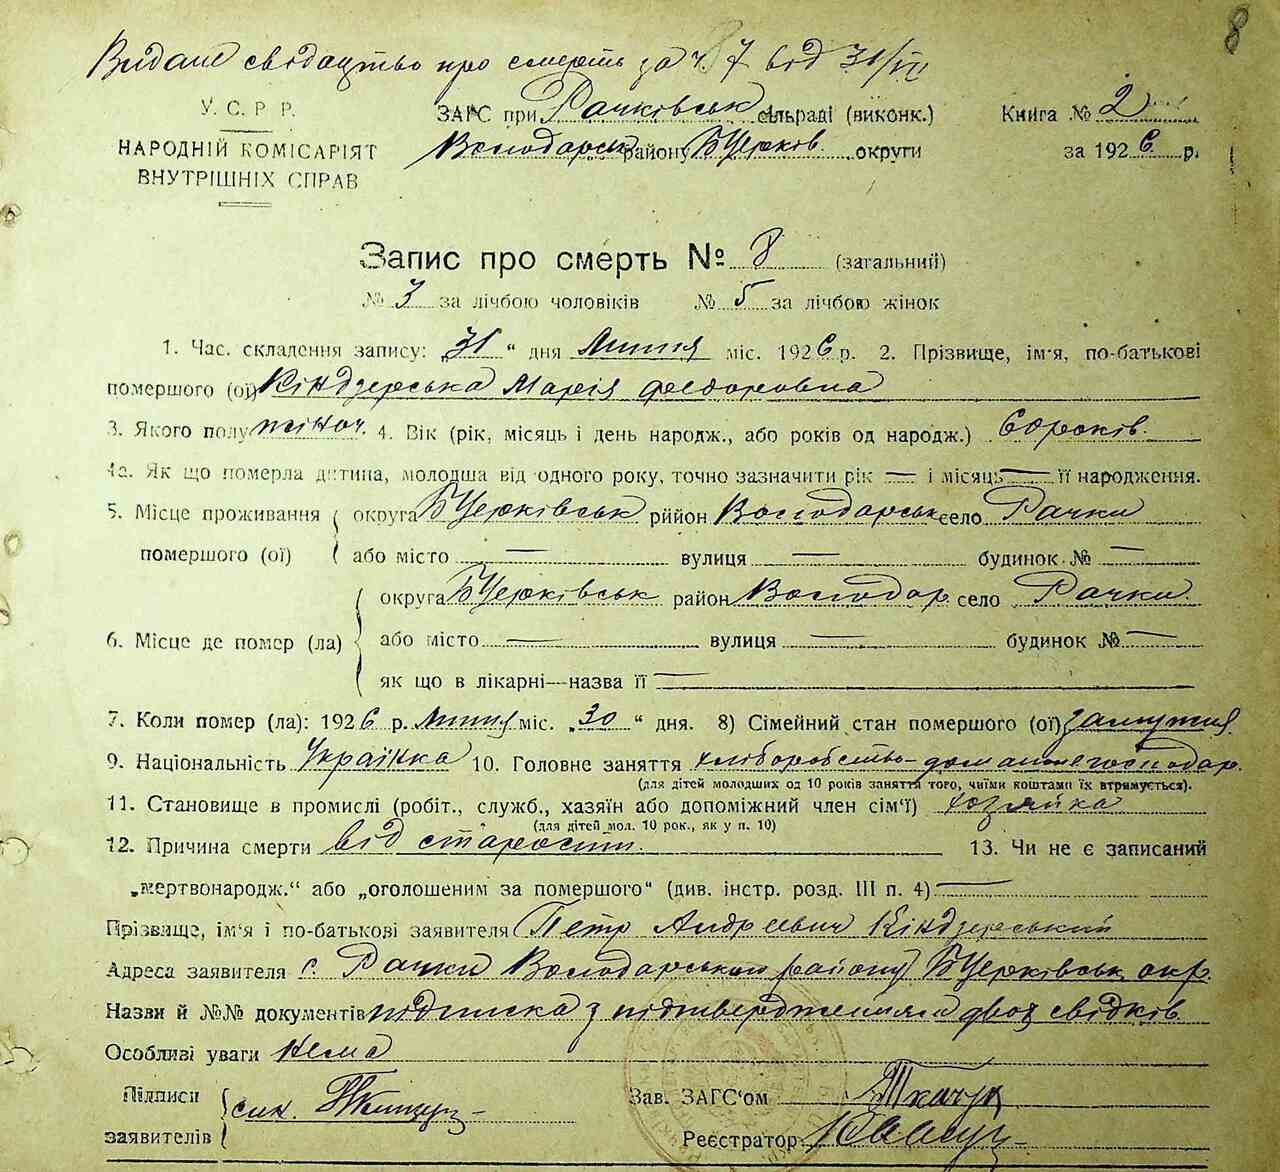 8
Видане свідоцтво про смерть за ч. 7 від 31/VII
У. С. Р. Р.
НАРОДНІЙ КОМІСАРІЯТ
ВНУТРІШНІХ СПРАВ
ЗАГС при Рачківськ сільраді (виконк.)
Володарськ району БЦерков. округи
Книга № 2
за 1926 р.
Запис про смерть № 8 (загальний)
№ 3 за лічбою чоловіків № 5 за лічбою жінок
1. Час. складення запису: „31“ дня Липня міс. 1926 р. 2. Прізвище, ім'я, по-батькові
помершого (ої) Кіндзерська Марія Федоровна
3. Якого полу жіноч. 4. Вік (рік, місяць і день народж., або років од народж.) 60 років.
4а. Як що померла дитина, молодша від одного року, точно зазначити рік — і місяць — її народження.
5. Місце проживання помершого (ої)
округа БЦерківськ рййон Володарськ село Рачки
або місто — вулиця — будинок № —
6. Місце де помер (ла)
округа БЦерківськ район Володар. село Рачки
або місто — вулиця — будинок № —
як що в лікарні—назва її —
7. Коли помер (ла): 1926 р. Липня міс. „30“ дня. 8) Сімейний стан помершого (ої) замужня.
9. Національність Українка 10. Головне заняття хліборобство-домашнє господар.
(для дітей молодших од 10 років заняття того, чиїми коштами їх втримується).
11. Становище в промислі (робіт., служб., хазяїн або допоміжний член сім'ї) хозяйка
(для дітей мол. 10 рок., як у п. 10)
12. Причина смерти від старости. 13. Чи не є записаний
„мертвонародж.“ або „оголошеним за помершого“ (див. інстр. розд. III п. 4) —
Прізвище, ім'я і по-батькові заявителя Петр Андреевич Кіндзерський
Адреса заявителя с. Рачки Володарського району БЦерківськ окр.
Назви й №№ документів підписка з підтвердженням двох свідків.
Особливі уваги Нема
Підписи заявителів
Зав. ЗАГС'ом Ткачук
Реєстратор